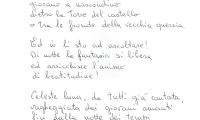 giocano a nascondino
dietro la Torre del castello
o tra le fronde della vecchia quercia.
Ed io li sto ad ascoltare!
Di notte la fantasia si libera
ed arricchisce l'animo
di beatitudine!
Celeste luna, da tutti già cantata,
vagheggiata dai giovani amanti
Sin dalla notte dei tempi